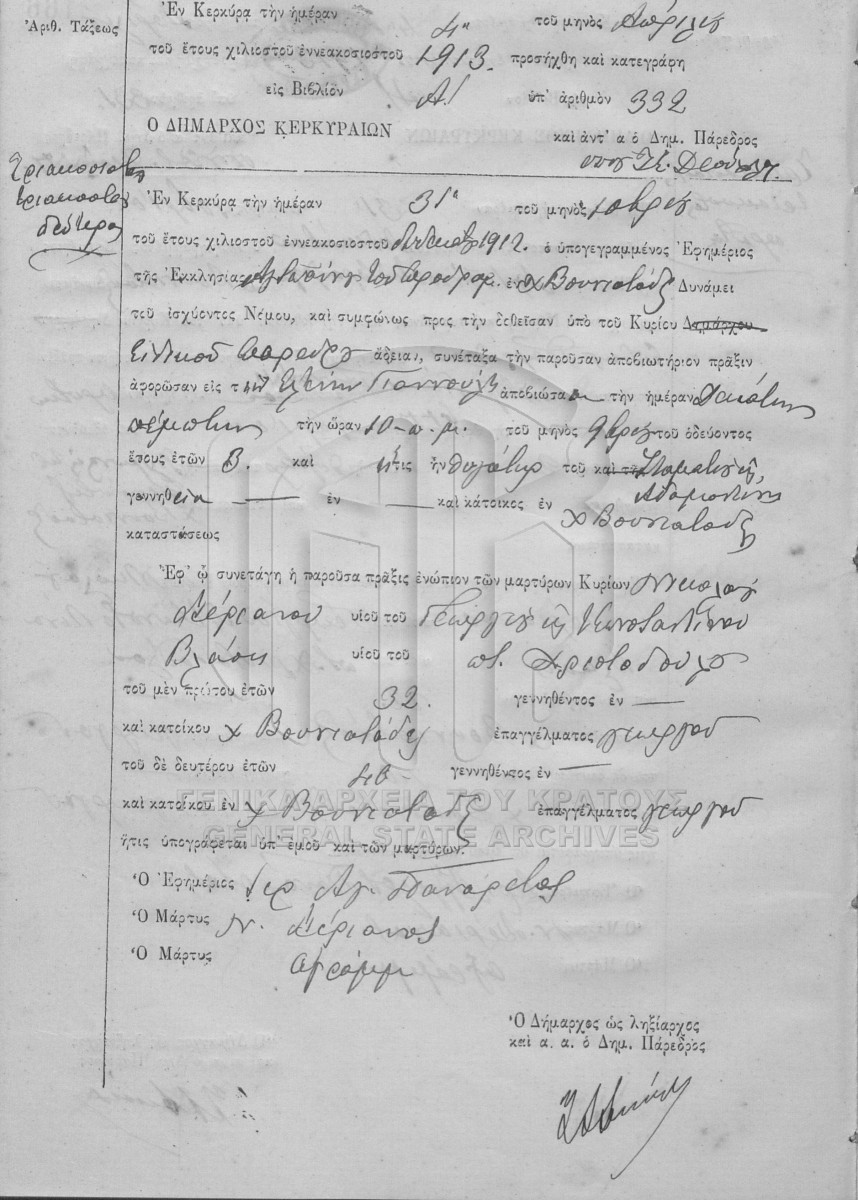 Ἀριθ. Τάξεως
Ἐν Κερκύρᾳ τὴν ἡμέραν 4ῃ τοῦ μηνὸς Ἀπριλίου
τοῦ ἔτους χιλιοστοῦ ἐννεακοσιοστοῦ 1913. προσήχθη καὶ κατεγράφη
εἰς Βιβλίον Α! ὑπ' ἀριθμὸν 332
Ο ΔΗΜΑΡΧΟΣ ΚΕΡΚΥΡΑΙΩΝ καὶ ἀντ' α ὁ Δημ. Πάρεδρος
τριακοσιοστὸν
τριακοστὸν
δεύτερον
Ἐν Κερκύρᾳ τὴν ἡμέραν 31ῃ τοῦ μηνὸς
τοῦ ἔτους χιλιοστοῦ ἐννεακοσιοστοῦ 1912. ὁ ὑπογεγραμμένος Ἐφημέριος
τῆς Ἐκκλησίας ἐν χ Βουνιατάδες Δυνάμει
τοῦ ἰσχύοντος Νόμου, καὶ συμφώνως πρὸς τὴν δοθεῖσαν ὑπὸ τοῦ Κυρίου Δημάρχου
Εἰδικοῦ Παρέδρου ἄδειαν, συνέταξα τὴν παροῦσαν ἀποβιωτήριον πρᾶξιν
ἀφορῶσαν εἰς τὴν Ἑλένην Γιαννούλη ἀποβιώσασαν τὴν ἡμέραν δεκάτην
πέμπτην τὴν ὥραν 10 π. μ. τοῦ μηνὸς 9βρίου τοῦ ὁδεύοντος
ἔτους ἐτῶν 3. καὶ ἥτις ἦν θυγάτηρ τοῦ καὶ τῆς Σταματίου κ̣
Ἀδαμαντίνης
γεννηθεῖσα — ἐν — καὶ κάτοικος ἐν
χ Βουνιατάδες
καταστάσεως
Ἐφ' ᾧ συνετάγη ἡ παροῦσα πρᾶξις ἐνώπιον τῶν μαρτύρων Κυρίων Νικολάου
υἱοῦ τοῦ Γεωργίου κ̣ Κωνσταντίνου
Βλάση υἱοῦ τοῦ ποτ. Χριστοδούλου
τοῦ μὲν πρώτου ἐτῶν 32. γεννηθέντος ἐν —
καὶ κατοίκου χ Βουνιατάδες ἐπαγγέλματος γεωργοῦ
τοῦ δὲ δευτέρου ἐτῶν γεννηθέντος ἐν —
καὶ κατοίκου ἐν χ Βουνιατάδες ἐπαγγέλματος γεωργοῦ
ἥτις ὑπογράφεται ὑπ' ἐμοῦ καὶ τῶν μαρτύρων.
Ὁ Ἐφημέριος Ἱερ Ἀγ. Πανάρετος
Ὁ Μάρτυς Ν.
Ὁ Μάρτυς ἀγράμμ
Ὁ Δήμαρχος ὡς ληξίαρχος
καὶ α. α. ὁ Δημ. Πάρεδρος
ΓΕΝΙΚΑ ΑΡΧΕΙΑ ΤΟΥ ΚΡΑΤΟΥΣ
GENERAL STATE ARCHIVES